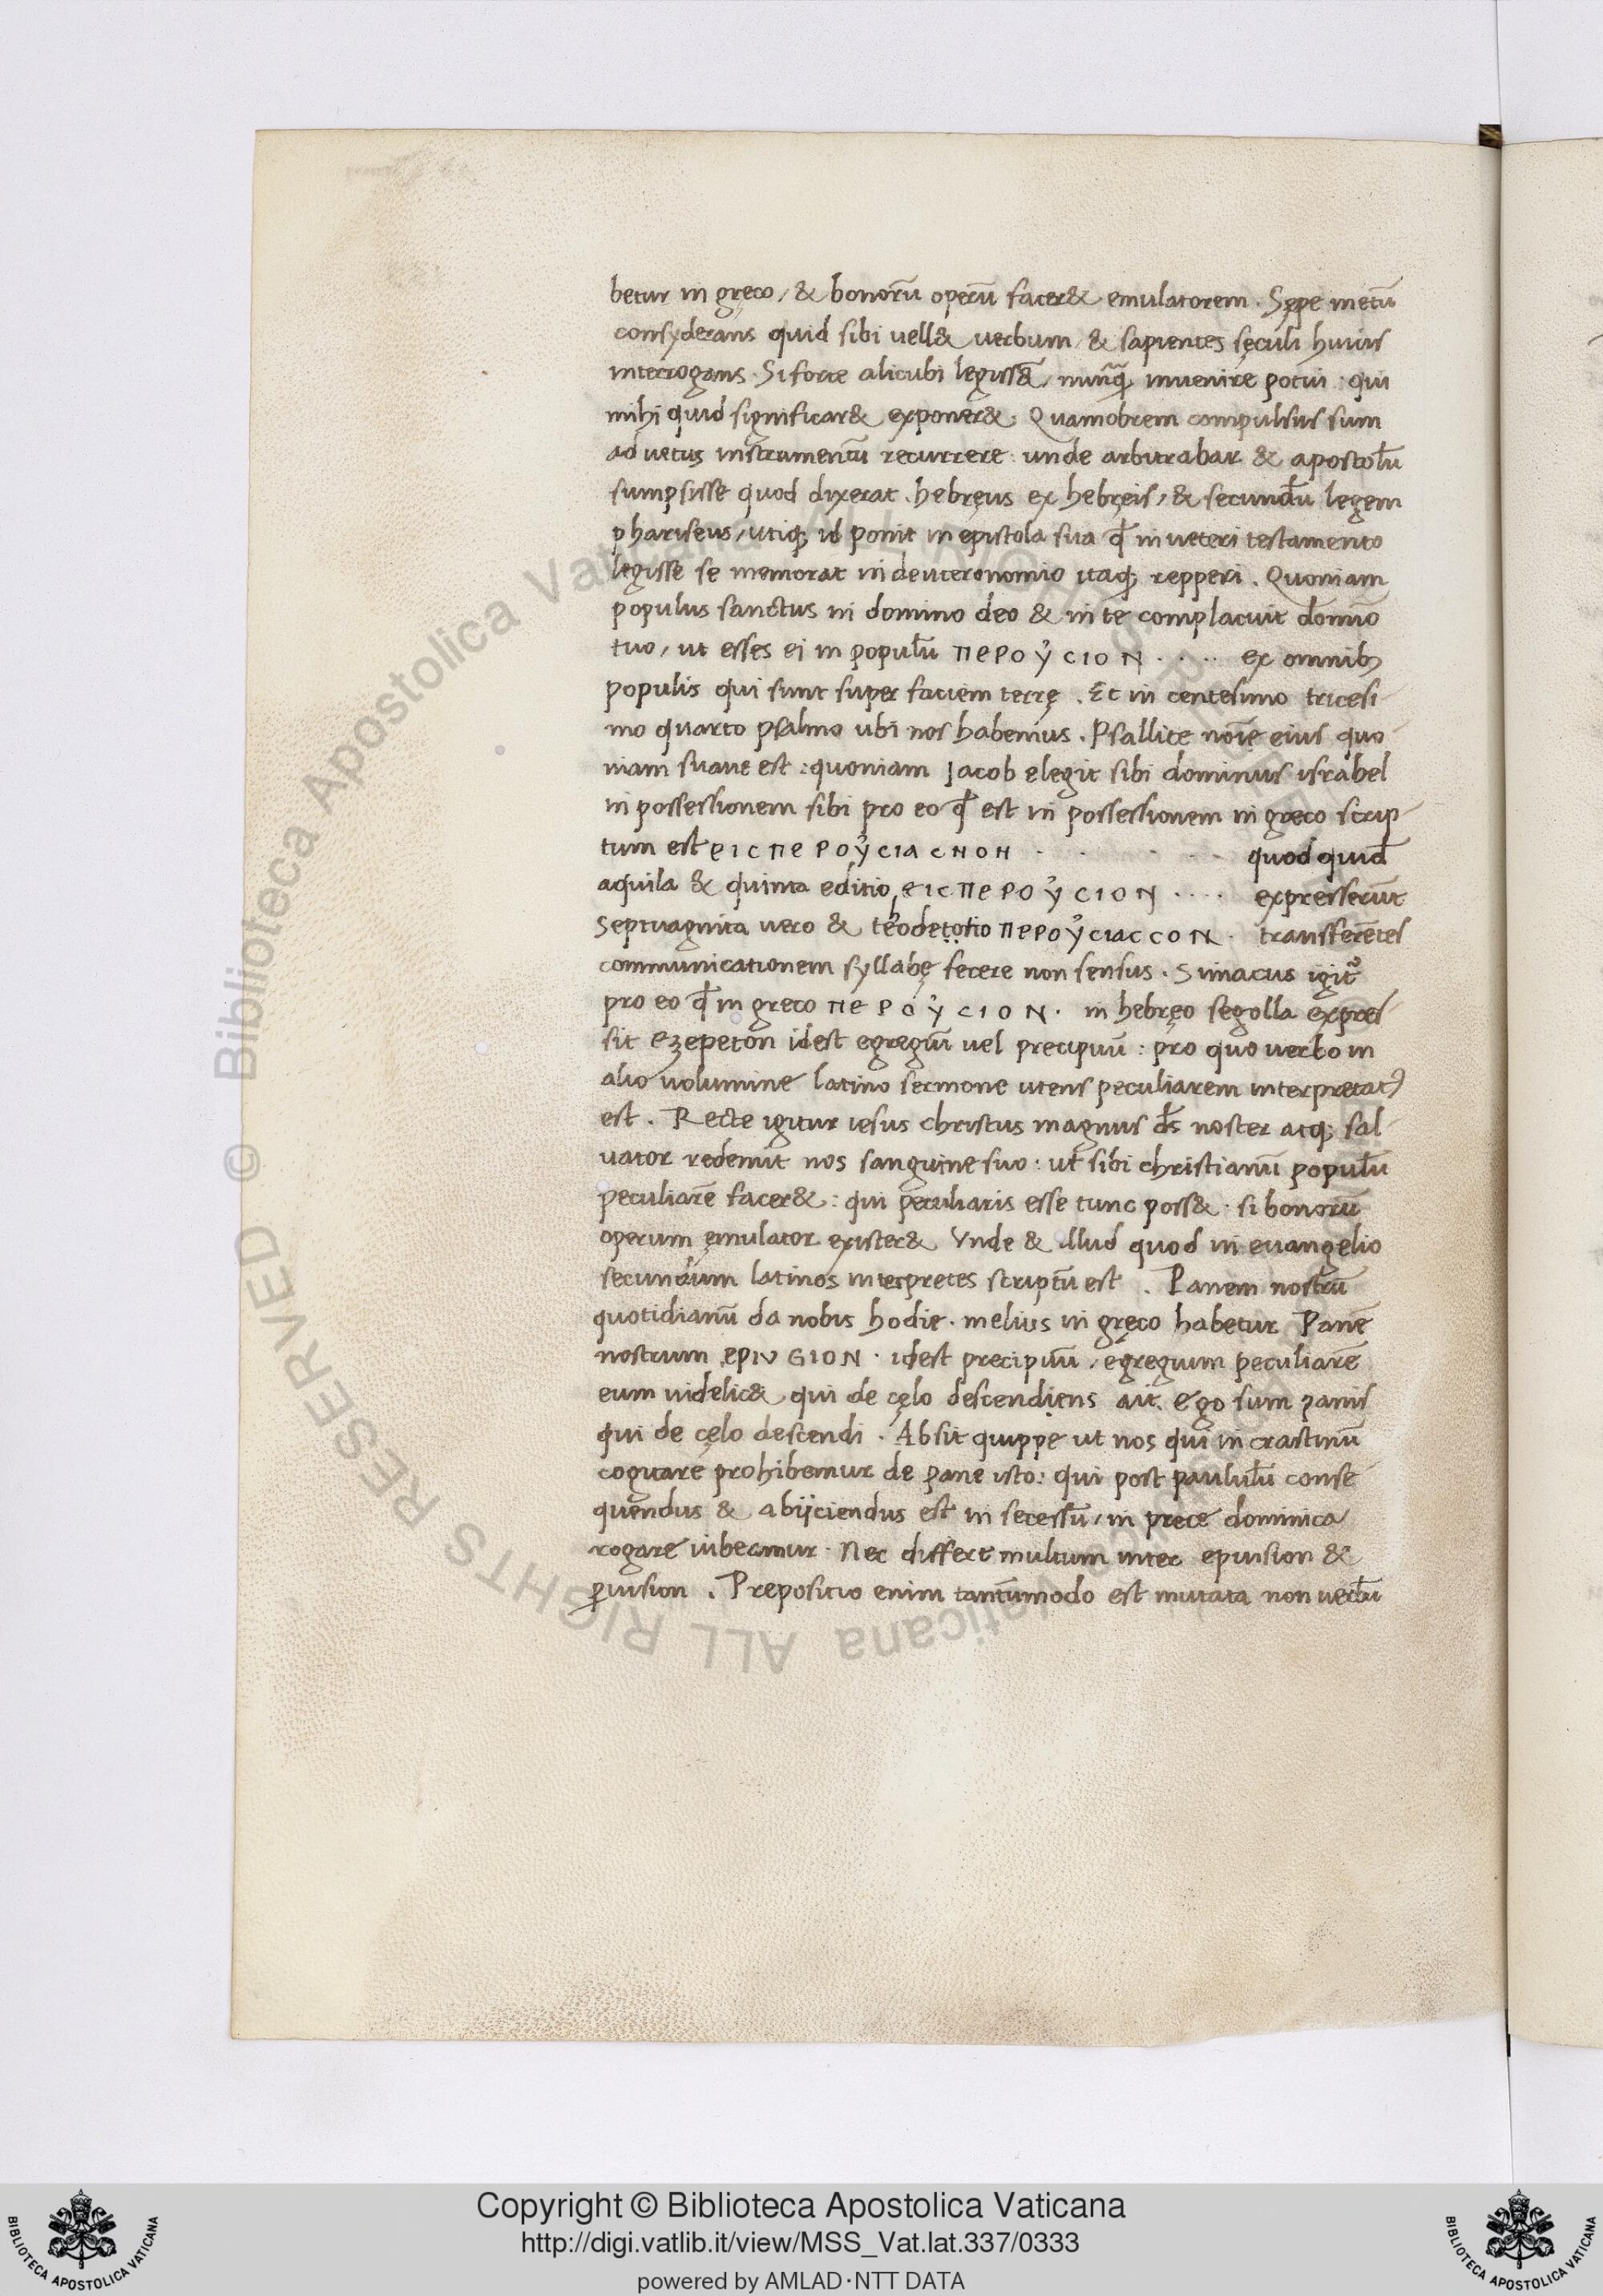 betur in gręco, & bonorū operū facer& emulatorem. Sępe mecū
consyderans quid sibi uell& uerbum & sapientes sęculi huius
interrogans. Si forte alicubi legiss&, nunq̄ inuenire potui: qui
mihi quid significar& exponer&. Quamobrem compulsus sum
ad uetus instrumentū recurrere: unde arbitrabar & apostolū
sumpsisse quod dixerat. hebręus ex hebręis, & secundū legem
phariseus, utiq; id ponit in epistola sua qđ in ueteri testamento
legisse se memorat in deuteronomio itaq; repperi. Quoniam
populus sanctus in domino deo & in te complacuit domino
tuo, ut esses ei in populū περοỳσιοΝ · · · · ex omnib;
populis qui sunt super faciem terrę. Et in centesimo tricesi-
mo quarto psalmo ubi nos habemus. Psallite noīe eius quo-
niam suaue est: quoniam Jacob elegit sibi dominus israhel
in possessionem sibi pro eo qđ est in possessionem in greco scrip-
tum est ειcπεροỳcια cΗοΗ · · · · quod quidē
aquila & quinta editio, ειcπεροỳcιοΝ · · · · expresserunt
Septuaginta uero & teodeṭoṭio περοỳcιαccοΝ · transferētes
communicationem syllabę fecere non sensus. Simacus igit᷑
pro eo qđ in greco περοỳcιοΝ · in hebręo segolla expres-
sit ezepeton idest egregiū uel precipuū: pro quo uerbo in
alio uolumine latino sermone utens peculiarem interpretatꝰ
est. Recte igitur iesus christus magnus dś noster atq; sal-
uator redemit nos sanguine suo: ut sibi christianū populū
peculiarē facer&: qui peculiaris esse tunc poss&. si bonorū
operum ęmulator exister& Vnde & illud quod in euangelio
secundum latinos interpretes scriptū est. Panem nostrū
quotidianū da nobis hodie. melius in gręco habetur Panē
nostrum epiυGιοΝ · idest precipuū, egregium peculiarē
eum uidelic& qui de cęlo descendens ait. Ego sum panis
qui de cęlo descendi. Absit quippe ut nos qui in crastinū
cogitare prohibemur de pane isto: qui post paululū conse-
quendus & abijciendus est in secessū, in prece dominica
rogare iubeamur. Nec differt multum inter epiusion &
ꝑiusion. Prepositio enim tantūmodo est mutata non uerbū
Copyright © Biblioteca Apostolica Vaticana
http://digi.vatlib.it/view/MSS_Vat.lat.337/0333
powered by AMLAD·NTT DATA